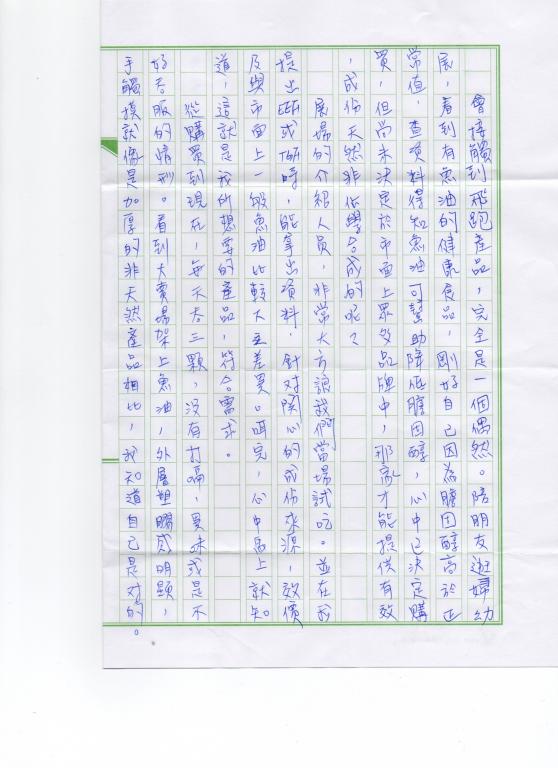 會接觸到飛跑產品，完全是一個偶然。陪朋友逛婦幼
展，看到有魚油的健康食品，剛好自己因為膽固醇高於正
常值，查資料得知魚油可幫助降低膽固醇，心中已決定購
買，但尚未決定於市面上眾多品牌中，那家才能提供有效
，成份天然非化學合成的呢？
展場的介紹人員，非常大方讓我們當場試吃。並在我
提出EE或TG時，能拿出資料，針对関心的成份來源，效價
及與市面上一般魚油比較大至差異。咡完，心中馬上就知
道，這就是我所想要的產品，符合需求。
從購買到現在，每天吞三顆，沒有打嗝，異味或是不
好吞服的情形。看到大賣場架上魚油，外層塑膠感明顯，
手觸摸就像是加厚的非天然產品相比，我知道自己是对的。